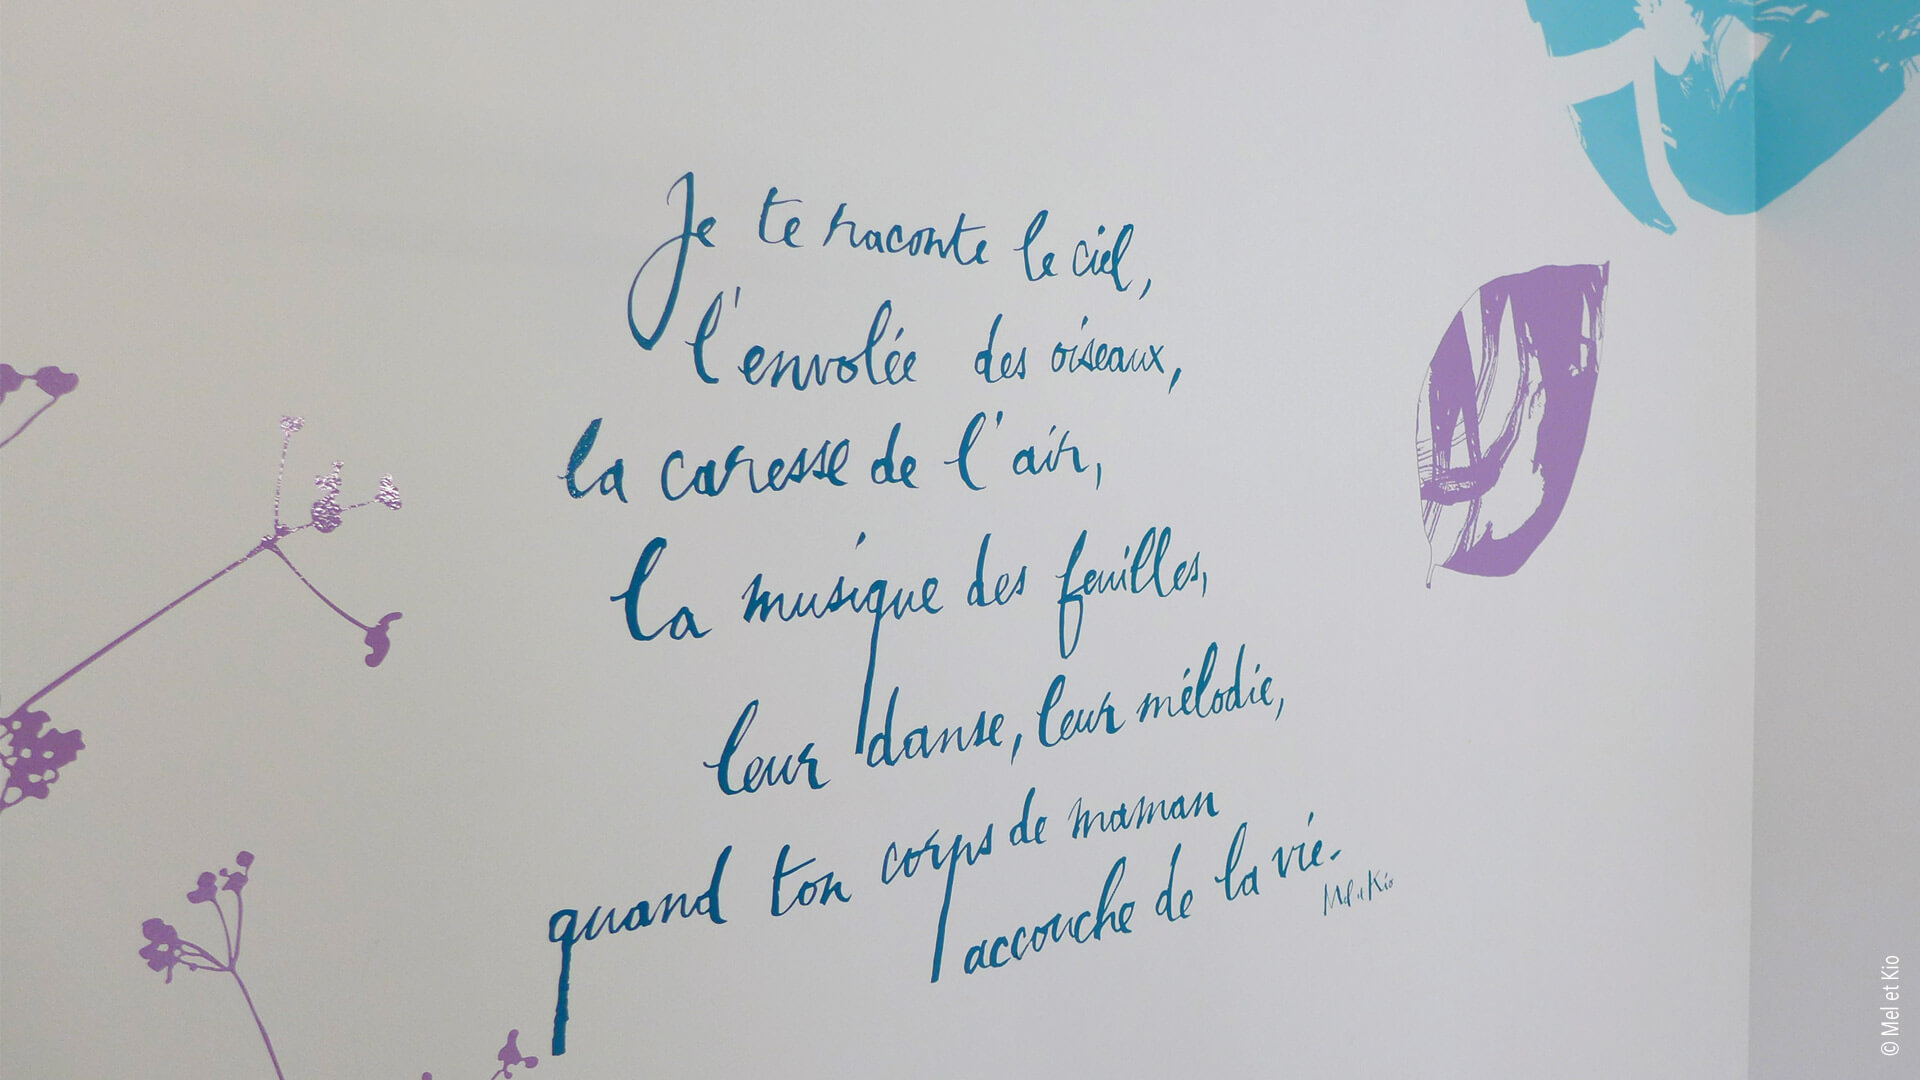 Je te raconte le ciel,
l'envolée des oiseaux,
la caresse de l'air,
la musique des feuilles,
leur danse, leur mélodie,
quand ton corps de maman
accouche de la vie.
Mel et Kio
© Mel et Kio